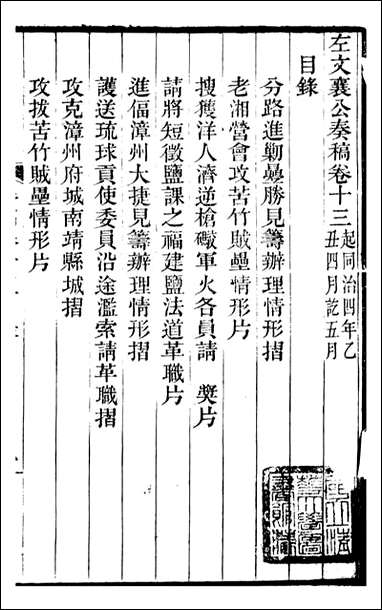 左文襄公奏稿卷十三起同治四年乙丑四月訖五月
目錄
分路進勦曡勝見籌辦理情形摺
老湘營會攻苦竹賊壘情形片
搜獲洋人濟逆槍礮軍火各員請 奬片
請將短徵鹽課之福建鹽法道革職片
進偪漳州大捷見籌辦理情形摺
護送琉球貢使委員沿途濫索請革職摺
攻克漳州府城南靖縣城摺
攻拔苦竹賊壘情形片